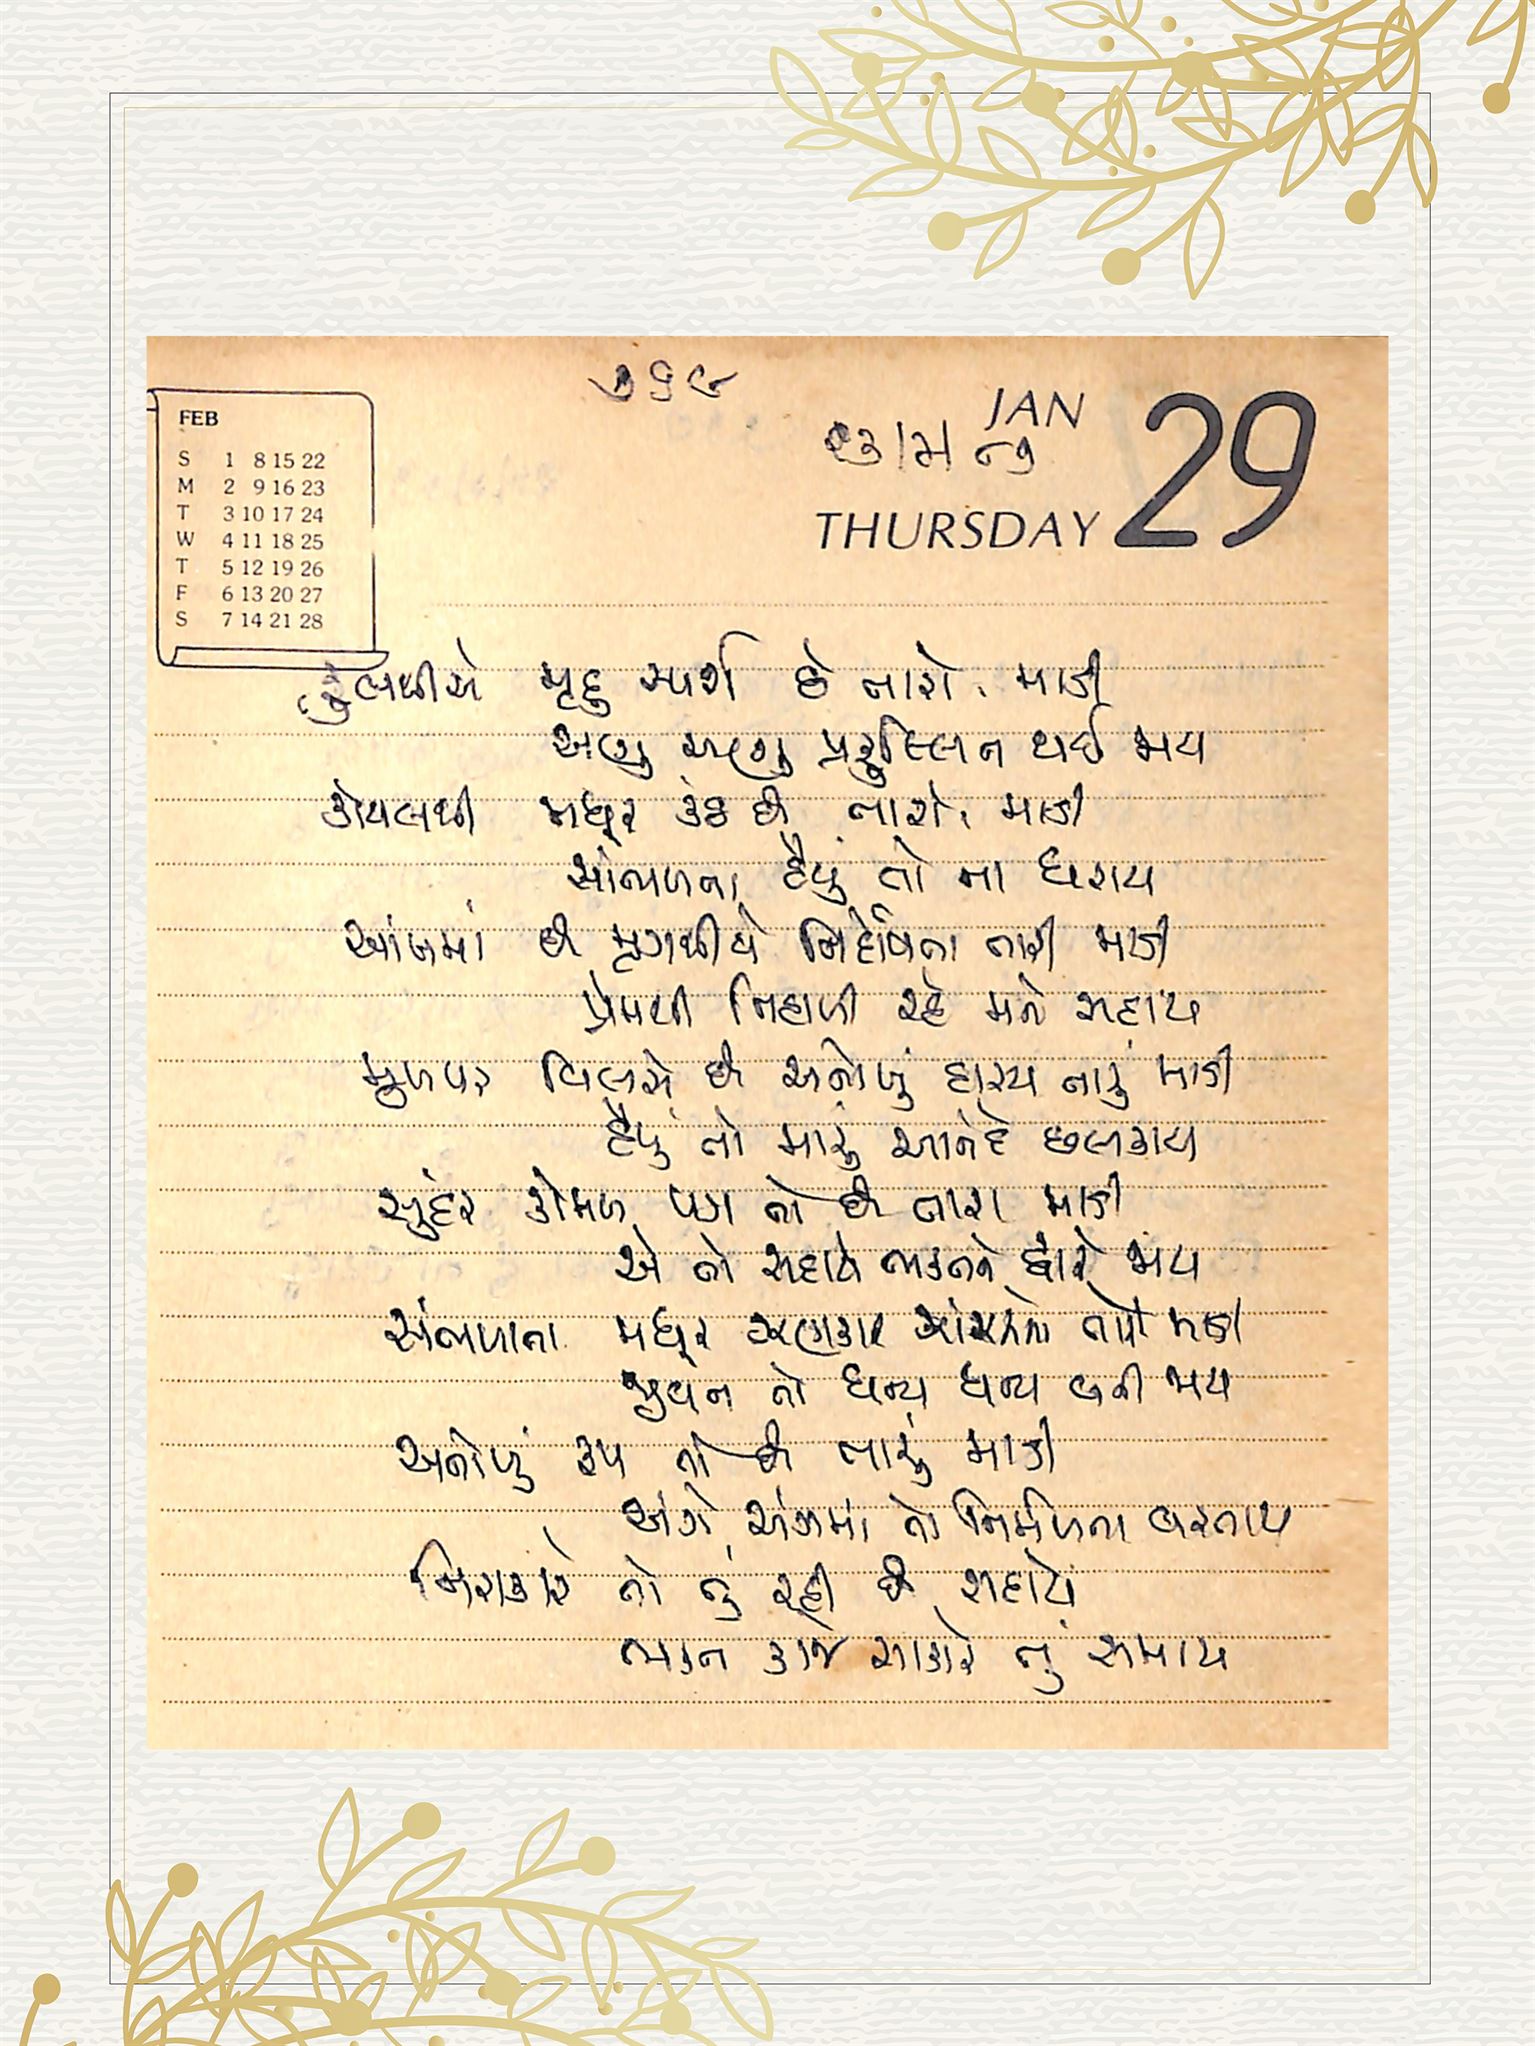 ૭૧૯
JAN 29
THURSDAY
FEB
S 1 8 15 22
M 2 9 16 23
T 3 10 17 24
W 4 11 18 25
T 5 12 19 26
F 6 13 20 27
S 7 14 21 28
ફુલથીએ મૃદુ સ્પર્શ છે તારો, માડી
અણુ અણુ પ્રફુલ્લિત થઈ જાય
કોયલથી મધૂર કંઠ છે તારો, માડી
સાંભળતા હૈયું તો ના ધરાય
આંખમાં છે મૃગથીયે નિર્દોષતા તારી માડી
પ્રેમથી નિહાળી રહે મને સદાય
મુખપર વિલસે છે અનોખું હાસ્ય તારું માડી
હૈયું તો મારું આનંદે છલકાય
સુંદર કોમળ પગ તો છે તારા માડી
એ તો સદાયે ભક્તને દ્વારે જાય
સાંભળતા મધૂર રણકાર ઝાંઝરનો તારો માડી
જીવન તો ધન્ય ધન્ય બની જાય
અનોખું રૂપ તો છે તારું માડી
અંગે અંગમાં તો નિર્મળતા વરતાય
નિરાકારે તો તું રહી છે સદાયે
ભક્ત કાજે સાકારે તું સમાય